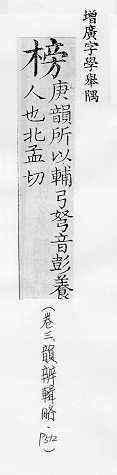 增廣字學舉隅
榜庚韻所以輔弓弩音彭養
人也北孟切
(卷三、韻辨輯略·P512)